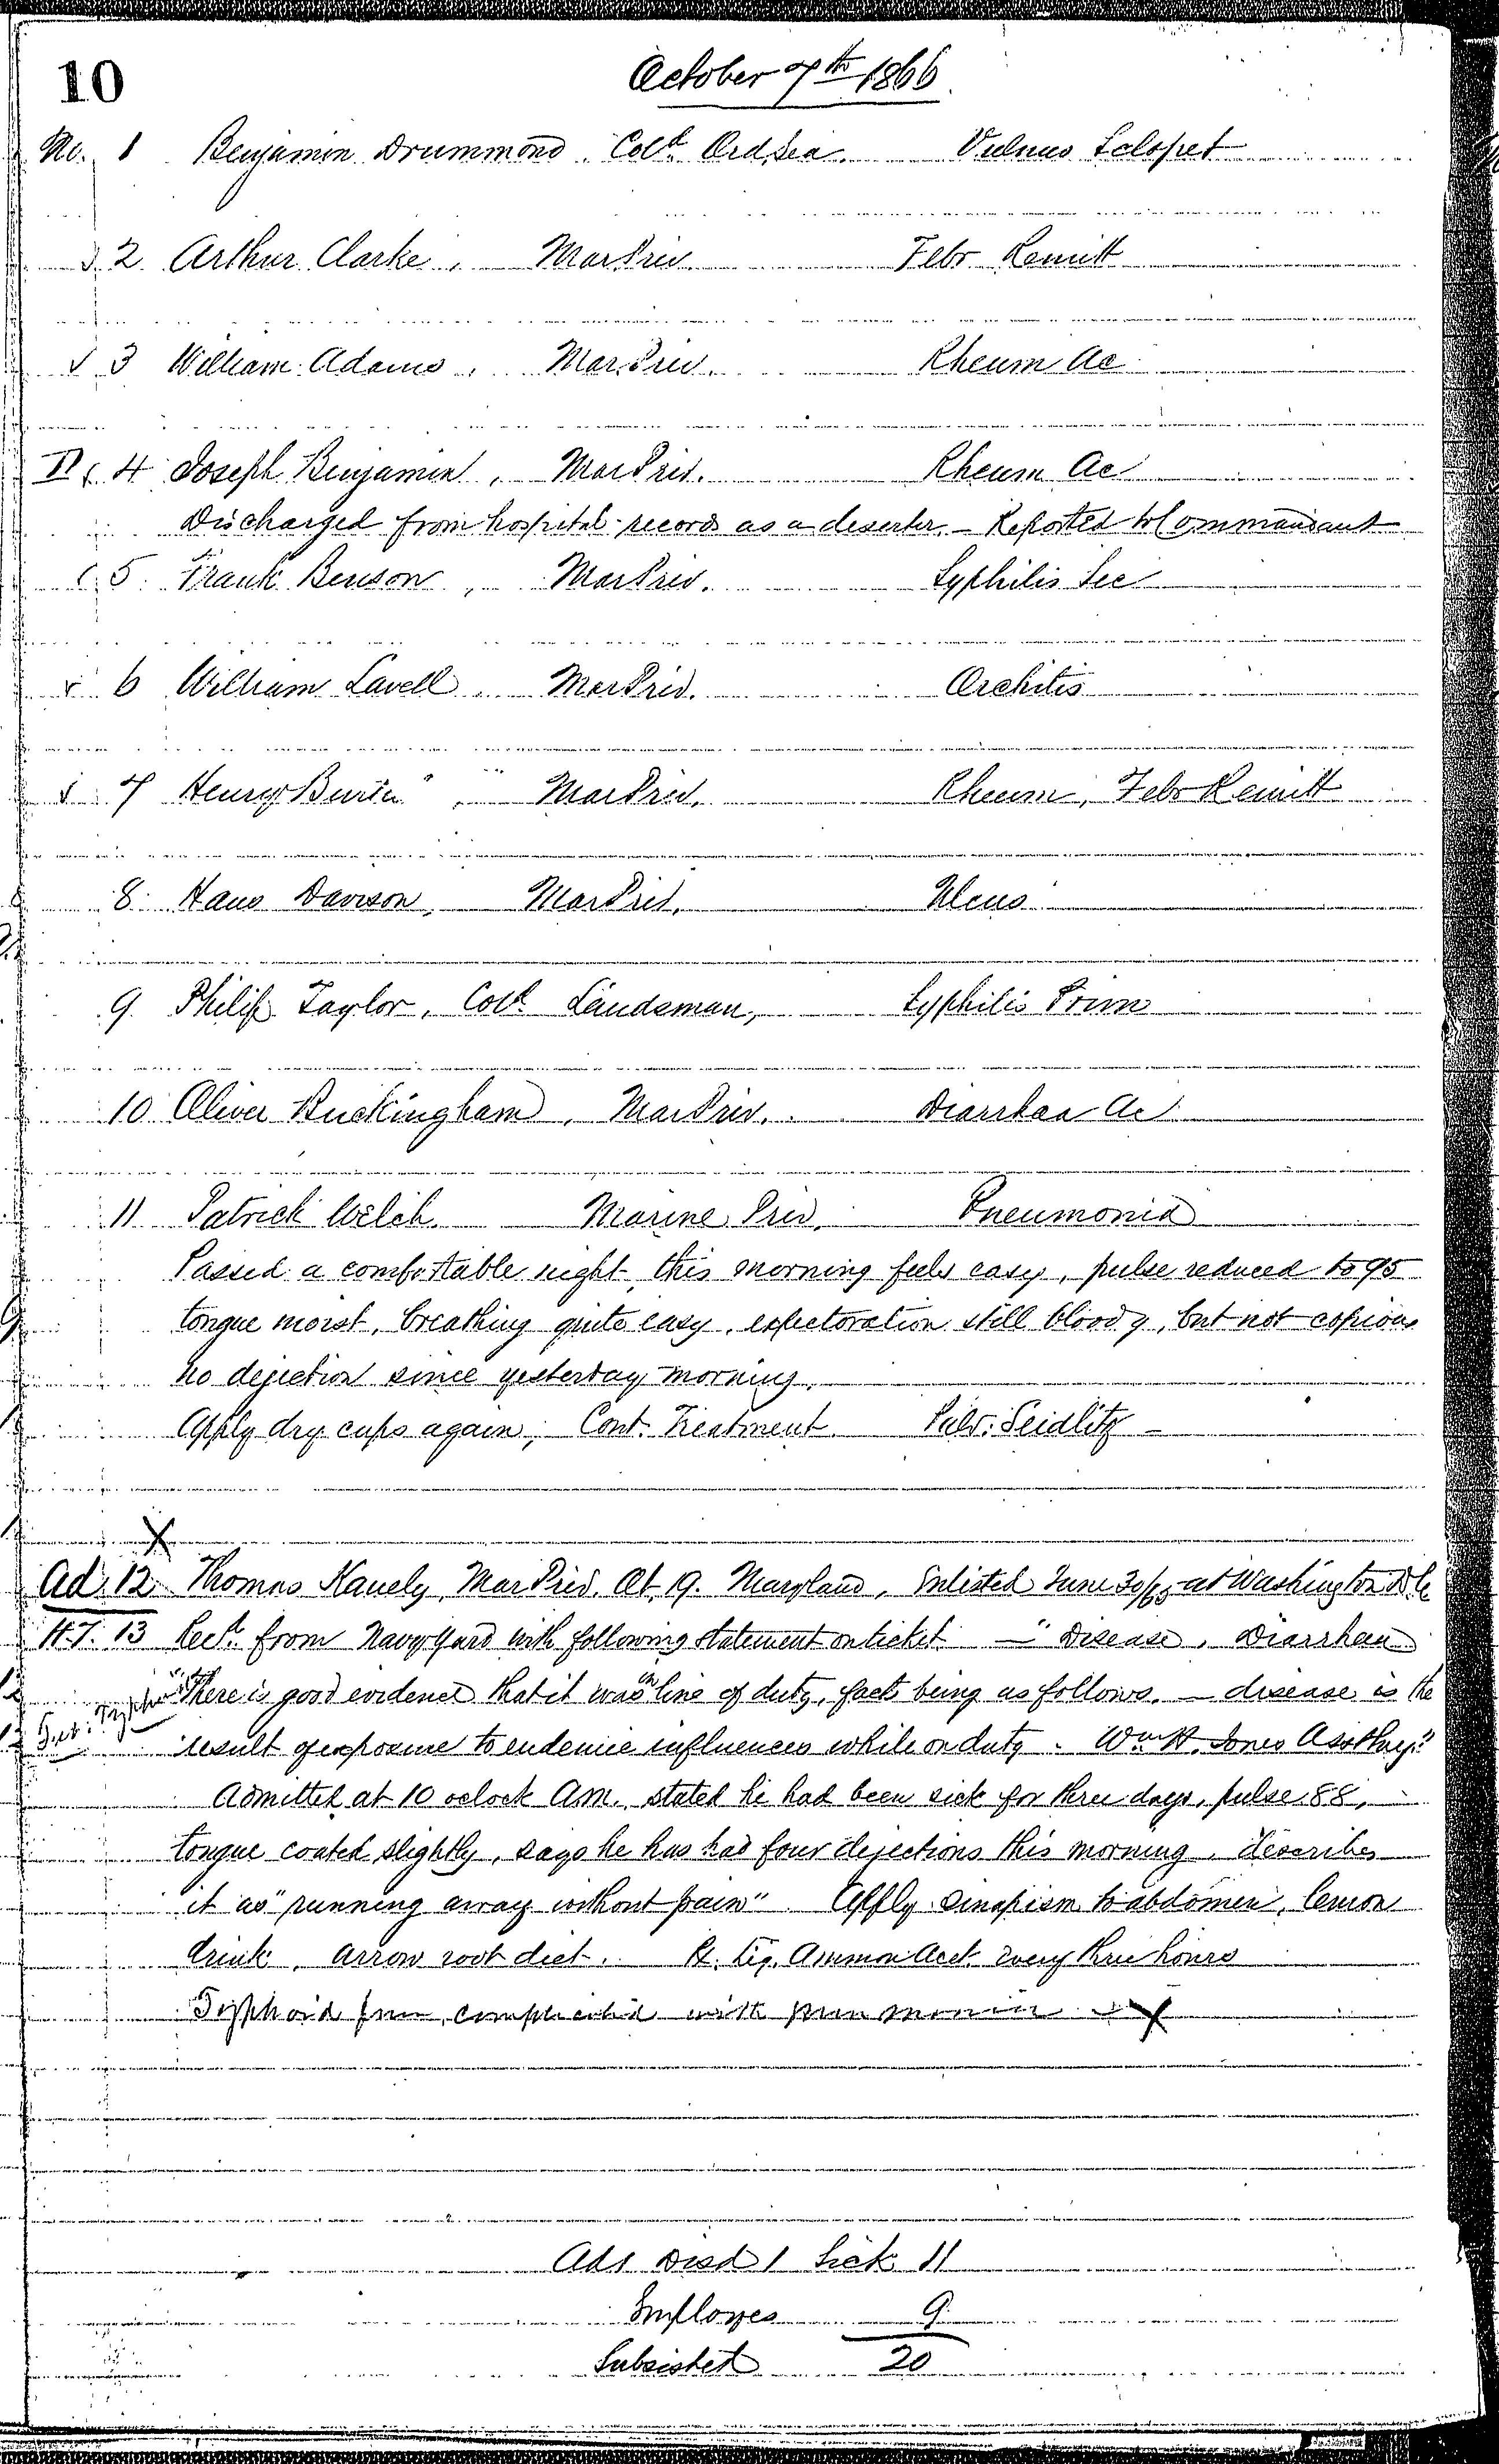 10
October 7th 1866
No. 1 Benjamin Drummond. Cold. Ord. Sea. Vulnus Sclopet
2 Arthur Clarke, Mar Priv. Febr Remitt
3 William Adams, Mar. Priv. Rheum Ac
D 4 Joseph Benjamin, Mar Priv. Rheum Ac
Discharged from hospital records as a deserter. - Reported to Commandant
5. Frank Benson, Mar Priv. Syphilis Sec
6 William Lavell, Mar Priv. Orchitis
7 Henry Mar Priv. Rheum, Febr Remitt
8. Hans Davison, Mar Priv. Ulcus
9. Philip Taylor, Cold. Landsman, Syphilis Prim
10 Oliver Buckingham, Mar Priv. Diarrhœa Ac
11 Patrick Welch. Marine Priv. Pneumonia
Passed a comfortable night, this morning feels easy, pulse reduced to 95
tongue moist, breathing quite easy, expectoration still bloody, but not copious
no dejection since yesterday morning.
Apply dry cups again, Cont. Treatment Pulv. Seidlitz -
X
Ad. 12 Thomas Mar Priv. Æt. 19. Maryland, Enlisted June 30/65 at Washington D.C
H.T. 13 Recd. from Navy Yard with following statement on ticket — "Disease, Diarrhœa
There is good evidence that it was in line of duty, facts being as follows. — disease is the
result of exposure to endemic influences while on duty. Wm H. Jones Asst Surg."
Admitted at 10 oclock A.M., stated he had been sick for three days, pulse 88,
tongue coated slightly, says he has had four dejections this morning, describes
it as "running away without pain" Apply sinapism to abdomen, lemon
drink, arrow root diet. Rx. Liq. Ammon Acet. every three hours
Typhoid fever, complicated with pneumonia X
Ad 1 Disd 1 Sick 11
Employes 9
Subsisted 20